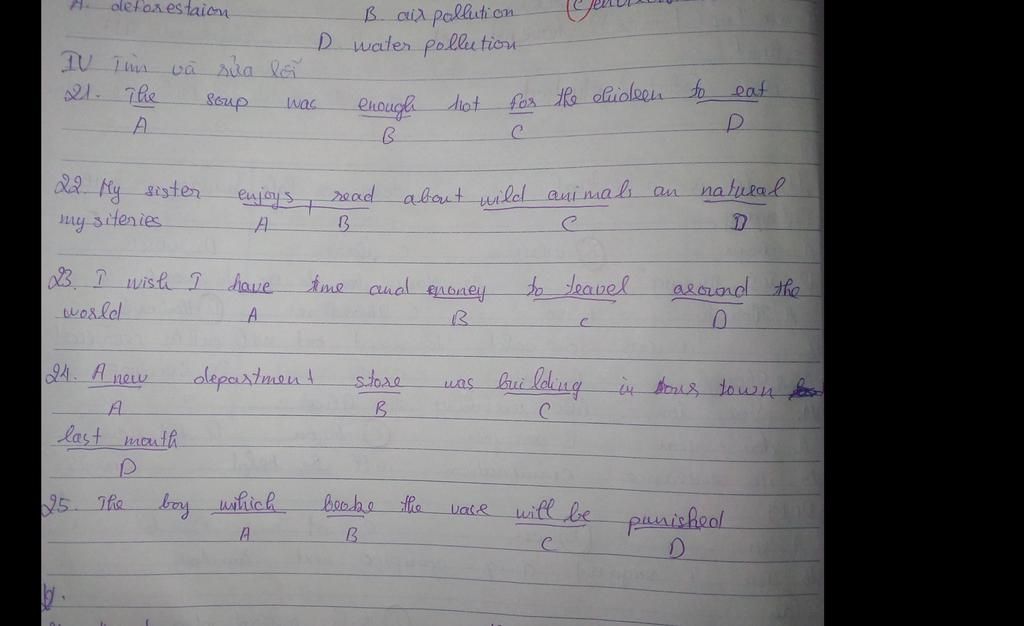 A. deforestaion B. air pollution C
D water pollution
IV Tìm và sửa lỗi
21. The soup was enough hot for the chideen to eat
A B C D
22. My sister enjoys read about wild animals an natural
my siteries A B C D
23. I wish I have time and money to travel around the
world A B C D
24. A new department store was building in town
A B C
last month
D
25. The boy which broke the vase will be punished
A B C D